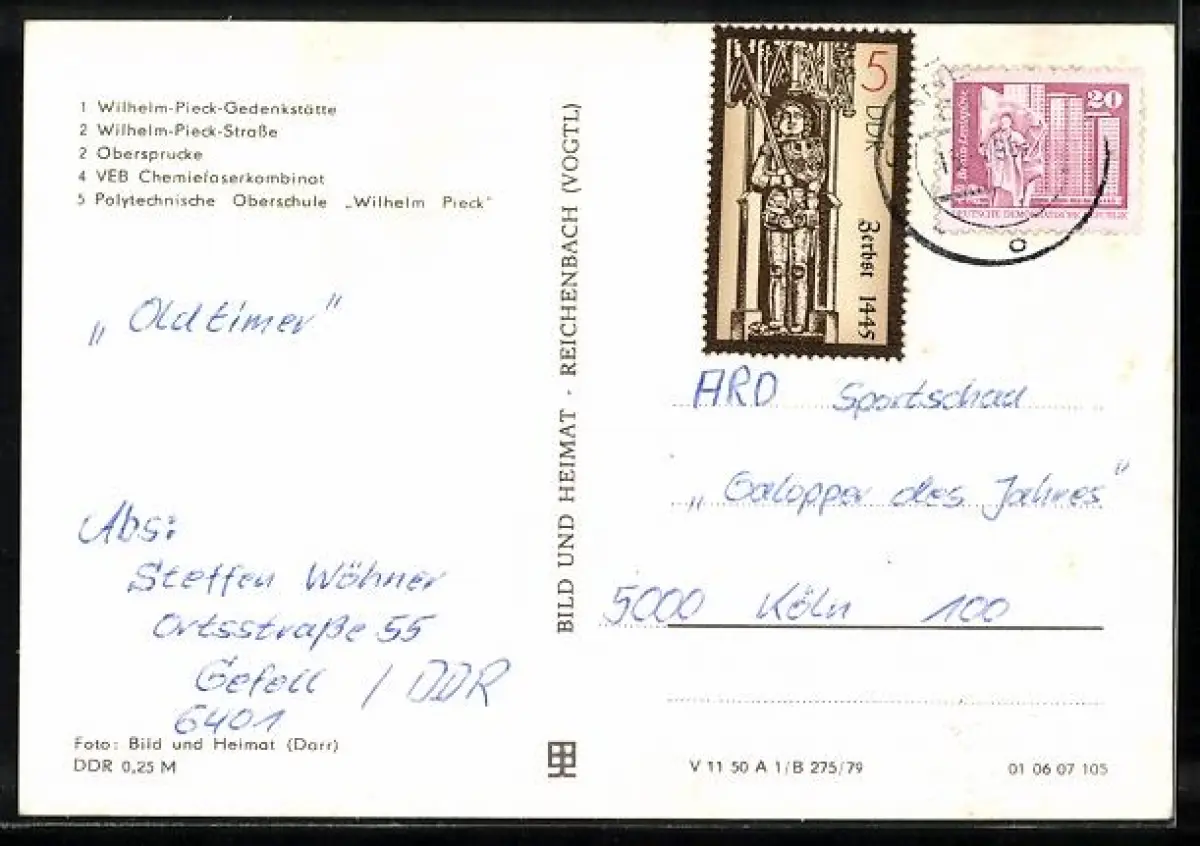 1 Wilhelm-Pieck-Gedenkstätte
2 Wilhelm-Pieck-Straße
2 Obersprucke
4 VEB Chemiefaserkombinat
5 Polytechnische Oberschule „Wilhelm Pieck"
„Oldtimer"
Abs:
Steffen Wöhner
Ortsstraße 55
Gefell / DDR
6401
Foto: Bild und Heimat (Darr)
DDR 0,25 M
BILD UND HEIMAT · REICHENBACH (VOGTL)
5 DDR
Zerbst 1445
20
Berlin-Leninplatz
DEUTSCHE DEMOKRATISCHE REPUBLIK
ARD Sportschau
„Galopper des Jahres"
5000 Köln 100
V 11 50 A 1/B 275/79
01 06 07 105